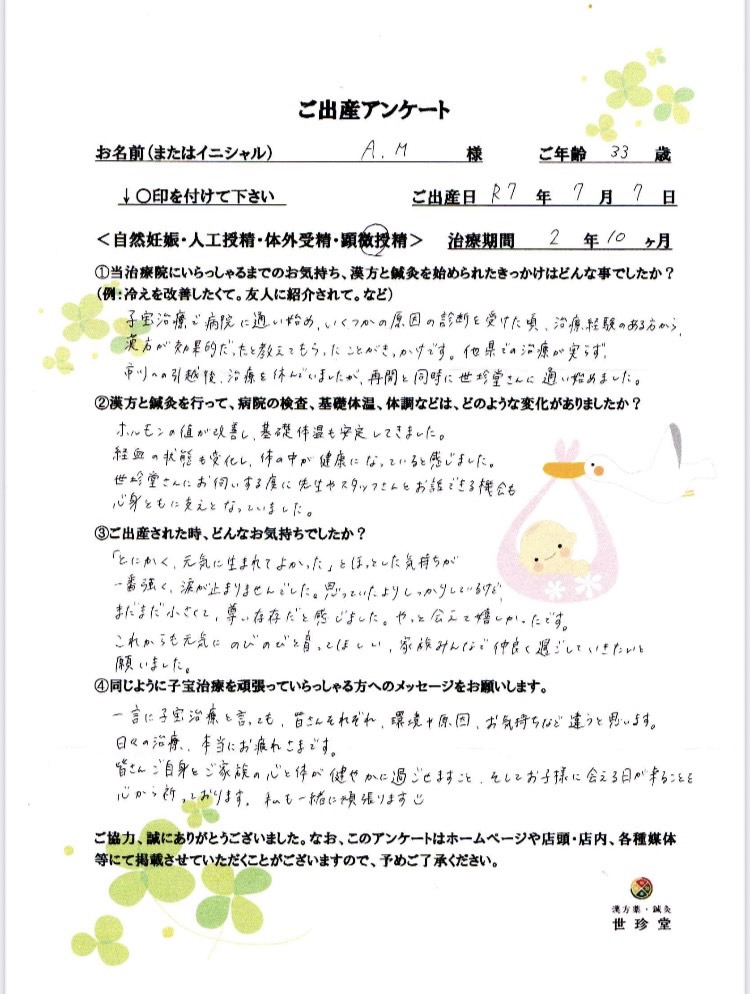 ご出産アンケート
お名前(またはイニシャル) A.M 様 ご年齢 33 歳
↓〇印を付けて下さい ご出産日 R7 年 7 月 7 日
<自然妊娠・人工授精・体外受精・顕微授精> 治療期間 2 年 10 ヶ月
①当治療院にいらっしゃるまでのお気持ち、漢方と鍼灸を始められたきっかけはどんな事でしたか?
(例:冷えを改善したくて。友人に紹介されて。など)
子宝治療で病院に通い始め、いくつかの原因の診断を受けた頃、治療経験のある方から、
漢方が効果的だったと教えてもらったことがきっかけです。他県での治療が実らず、
市川への引越後、治療を休んでいましたが、再開と同時に世珍堂さんに通い始めました。
②漢方と鍼灸を行って、病院の検査、基礎体温、体調などは、どのような変化がありましたか?
ホルモンの値が改善し、基礎体温も安定してきました。
経血の状態も変化し、体の中が健康になっていると感じました。
世珍堂さんにお伺いする度に先生やスタッフさんとお話できる機会も
心身ともに支えとなっていました。
③ご出産された時、どんなお気持ちでしたか?
「とにかく、元気に生まれてよかった」とほっとした気持ちが
一番強く、涙が止まりませんでした。思っていたよりしっかりしているけど、
まだまだ小さくて、尊い存在だと感じました。やっと会えて嬉しかったです。
これからも元気にのびのびと育ってほしい、家族みんなで仲良く過ごしていきたいと
願いました。
④同じように子宝治療を頑張っていらっしゃる方へのメッセージをお願いします。
一言に子宝治療と言っても、皆さんそれぞれ、環境や原因、お気持ちなど違うと思います。
日々の治療、本当にお疲れさまです。
皆さんご自身とご家族の心と体が健やかに過ごせますこと、そしてお子様に会える日が来ることを
心から祈っております。私も一緒に頑張ります☺
ご協力、誠にありがとうございました。なお、このアンケートはホームページや店頭・店内、各種媒体
等にて掲載させていただくことがございますので、予めご了承ください。
漢方薬・鍼灸
世珍堂